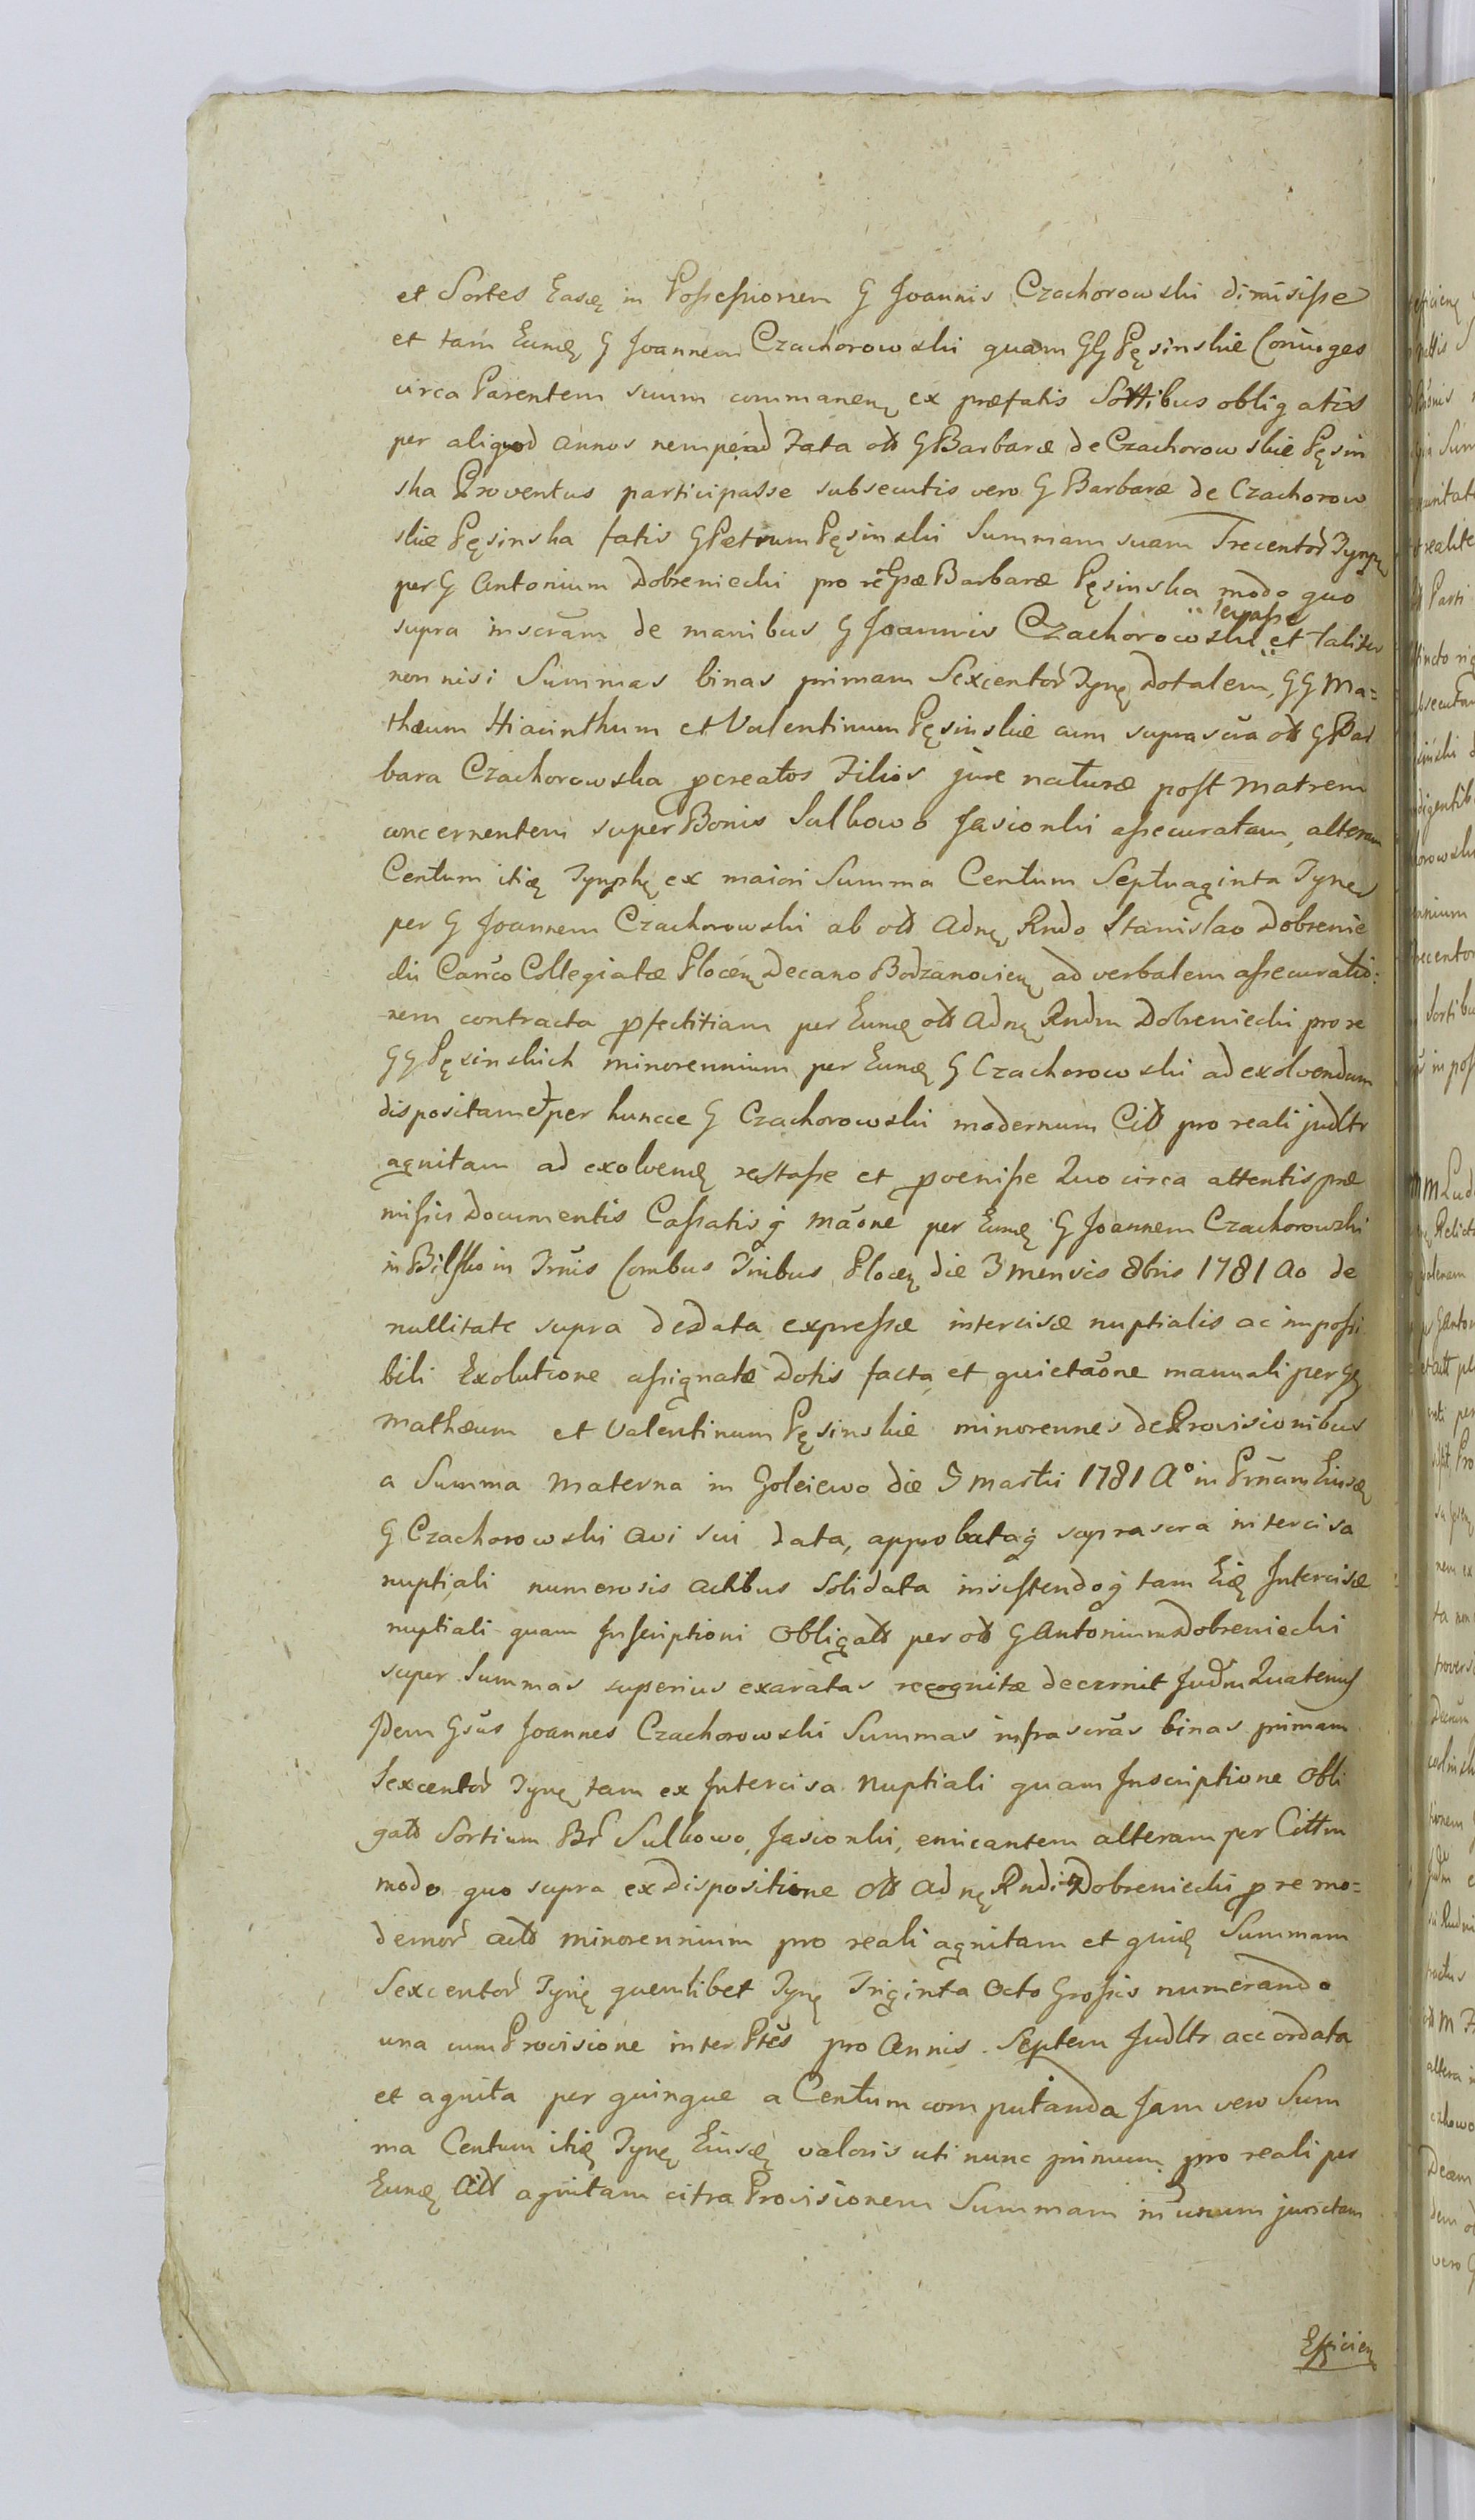 et Sortes Easę in Possessionem G Joannis Czachorowski dimisisse
et tam Eumę G Joannem Czachorowski quam GG Pęsinskie Coniuges
circa Parentem suum commanenę ex præfatis Sortibus obligatis
per aliquod annos nempe ad Fata od G Barbaræ de Czachorowskie Pęsin
ska Proventus participasse subsecutis vero G Barbaræ de Czachorow
skie Pęsinska fatis G Petrum Pęsinski Summam suam Trecentor Tynę
per G Antonium Dobreniecki pro re Gsæ Barbaræ Pęsinska modo quo
supra inscram de manibus G Joannis Czachorowski levasse et taliter
non nisi Summas binas primam Sexcentor Tynę dotalem, GG Ma=
thæum Hiacinthum et Valentinum Pęsinskie cum suprascra od G Bar
bara Czachorowska pcreatos Filios jure naturæ post Matrem
concernentem super Bonis Sulkowo Jasionki assecuratam, alteram
Centum itię Tynphę ex maiori Summa Centum Septuaginta Tyne
per G Joannem Czachorowski ab od Adnę Rndo Stanislao Dobrenie
cki Canco Collegiatæ Plocenę Decano Bodzanovienę ad verbalem assecuratio:
nem contracta pfectitiam per Eumę od Adnę Rndm Dobreniecki pro re
GG Pęsinskich minorennium per Eumę G Czachorowski ad exolvendum
dispositam et per huncce G Czachorowski modernum Citt pro reali judltr
agnitam ad exolvenę restasse et pvenisse Quo circa attentis præ
missis Documentis Cassatisq maone per Eumę G Joannem Czachorowski
in Bilsko in Trnis Combus Tribus Plocenę die 3 mensis 8bris 1781 Ao de
nullitate supra de Data expressæ intercisæ nuptialis ac impossi
bili Exolutione assignatæ Dotis facta, et quietaone manuali per GG
Mathæum et Valentinum Pęsinskie minorennes de Provisionibus
a Summa Materna in Goleiewo die 5 Martii 1781 Ao in Prnam Eiusę
G Czachorowski Avi sui data, approbataq suprascra intercisa
nuptiali numerosis actibus Solidata insistendoq tam Eię Intercisæ
nuptiali quam Inscriptioni Obligatt per od G Antonium Dobreniecki
super Summas superius exaratas recognitæ decernit Judm Quatenus
Idem Gsus Joannes Czachorowski Summas infrascras binas primam
Sexcentor Tynę tam ex Intercisa Nuptiali quam Inscriptione Obli
gatt Sortium Br Sulkowo, Jasionki, emicantem alteram per Cittm
modo quo supra ex Dispositione od Adnę Rndi Dobreniecki p re mo=
dernor actt minorennium pro reali agnitam et quię Summam
Sexcentor Tynę quemlibet Tynę Triginta Octo Grossis numerando
una cum Provisione inter Ptes pro Annis Septem Judltr accordata
et agnita per quinque a Centum computanda Jam vero Sum
ma Centum itię Tynę Eiusę valoris uti nunc primum pro reali per
Eumę Citt agnitam citra Provisionem Summam in unum junctam
Efficienę